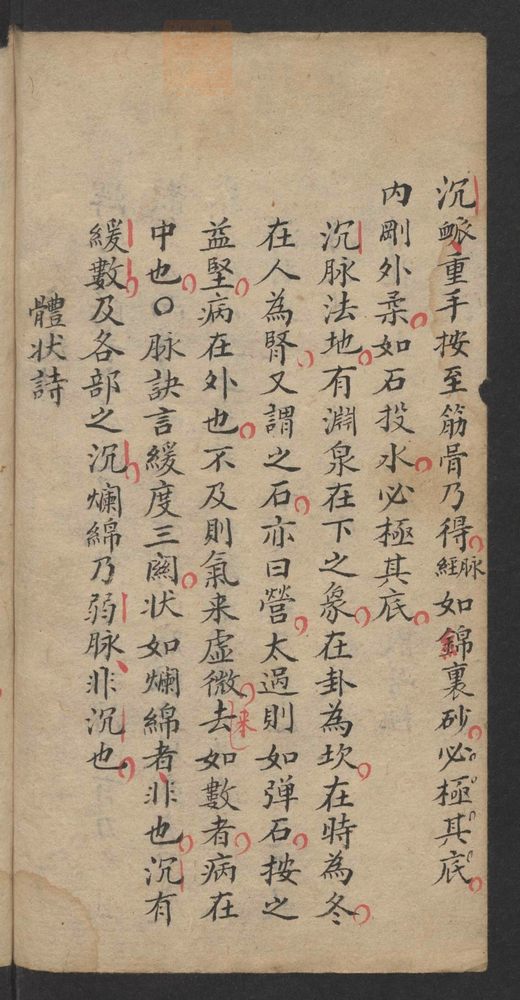 沉脈重手按至筋骨乃得脉經如錦裏砂必極其底
内剛外柔如石投水必極其底
沉脉法地有淵泉在下之象在卦為坎在時為冬
在人為腎又謂之石亦曰營太過則如弹石按之
益堅病在外也不及則氣来虚微去如數者病在
中也〇脉訣言緩度三関状如爛綿者非也沉有
緩數及各部之沉爛綿乃弱脉非沉也
體状詩